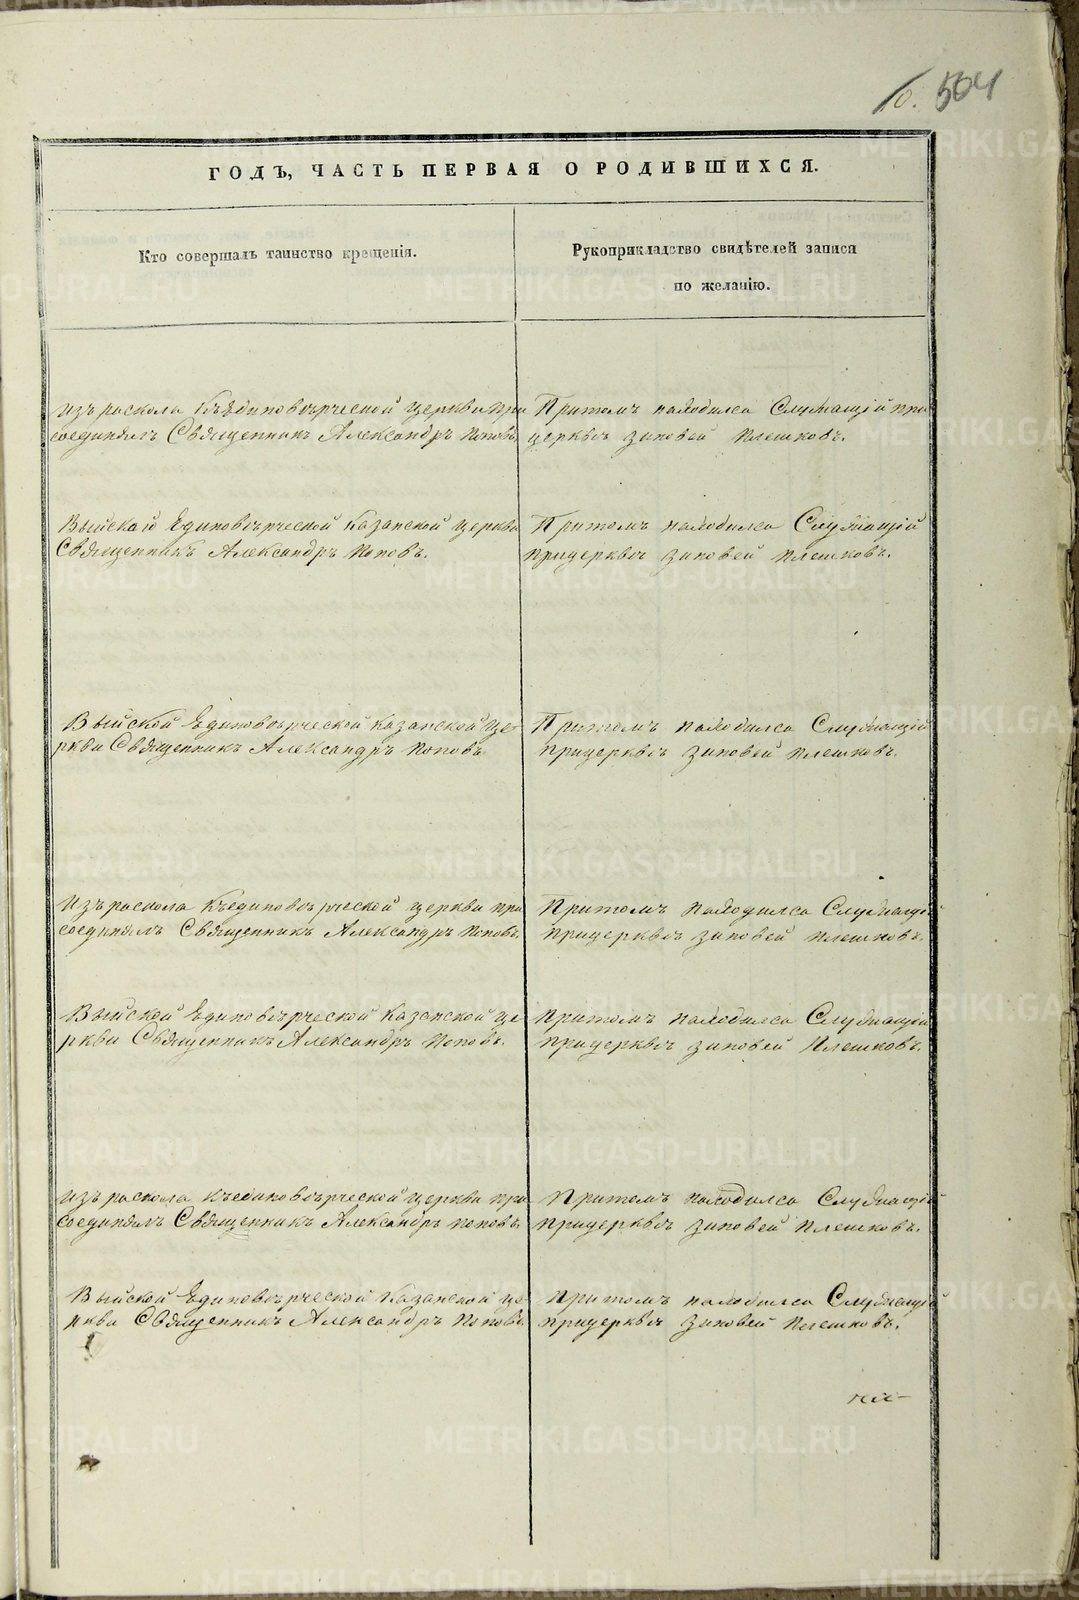 10. 504
ГОДЪ, ЧАСТЬ ПЕРВАЯ О РОДИВШИХСЯ.
Кто совершалъ таинство крещенія.
Рукоприкладство свидѣтелей записи
по желанію.
изъ раскола Къединовѣрческой церкви при
соединялъ Священникъ Александръ Поповъ.
Притомъ находился Служащій при
церквѣ Зиновей Плешковъ.
Выйской Единовѣрческой Казанской церкви
Священникъ Александръ Поповъ.
Притомъ находился Служащій
прицерквѣ Зиновей Плешковъ.
Выйской Единовѣрческой Казанской це-
ркви Священникъ Александръ Поповъ
Притомъ находился Служащій
прицерквѣ Зиновей Плешковъ.
Изъ раскола Къединовѣрческой церкви при
соединялъ Священникъ Александръ Поповъ.
Притомъ находился Служащій
прицерквѣ Зиновей Плешковъ.
Выйской Единовѣрческой Казанской це-
ркви Священникъ Александръ Поповъ.
Притомъ находился Служащій
прицерквѣ Зиновей Плешковъ.
изъ раскола Къединовѣрческой церкви при
соединялъ Священникъ Александръ Поповъ.
Притомъ находился Служащій
прицерквѣ Зиновей Плешковъ.
Выйской Единовѣрческой Казанской це-
ркви Священникъ Александръ Поповъ
Притомъ находился Служащій
прицерквѣ Зиновей Плешковъ.
METRIKI.GASO-URAL.RU